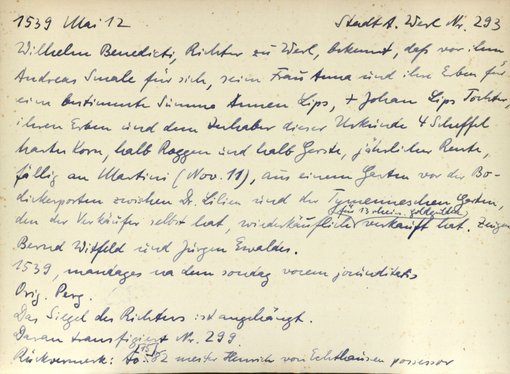 1539 Mai 12 Stadt A. Werl Nr. 293
Wilhelm Benedicti, Richter zu Werl, bekennt, daß vor ihm
Andreas Smale für sich, seine Frau Anna und ihre Erben für
eine bestimmte Summe Annen Lips, + Johan Lips Tochter,
ihren Erben und dem Inhaber dieser Urkunde 4 Scheffel
hartes Korn, halb Roggen und halb Gerste, jährlicher Rente,
fällig an Martini (Nov. 11), aus einem Garten vor der Bo-
dickerporten zwischen Dr. Lilien und der Tymenneschen Garten,
für 13 rhein. Goldgulden
den der Verkäufer selbst hat, wiederkäuflich verkauft hat. Zeugen
Bernd Witfeld und Jürgen Ewaldes.
1539, mandages na dem sondag vocem jocunditatis
Orig. Perg.
Das Siegel des Richters ist angehängt.
Daran transfigiert Nr. 299.
Rückvermerk: to 82 meister Henrich von Echthausen possessor